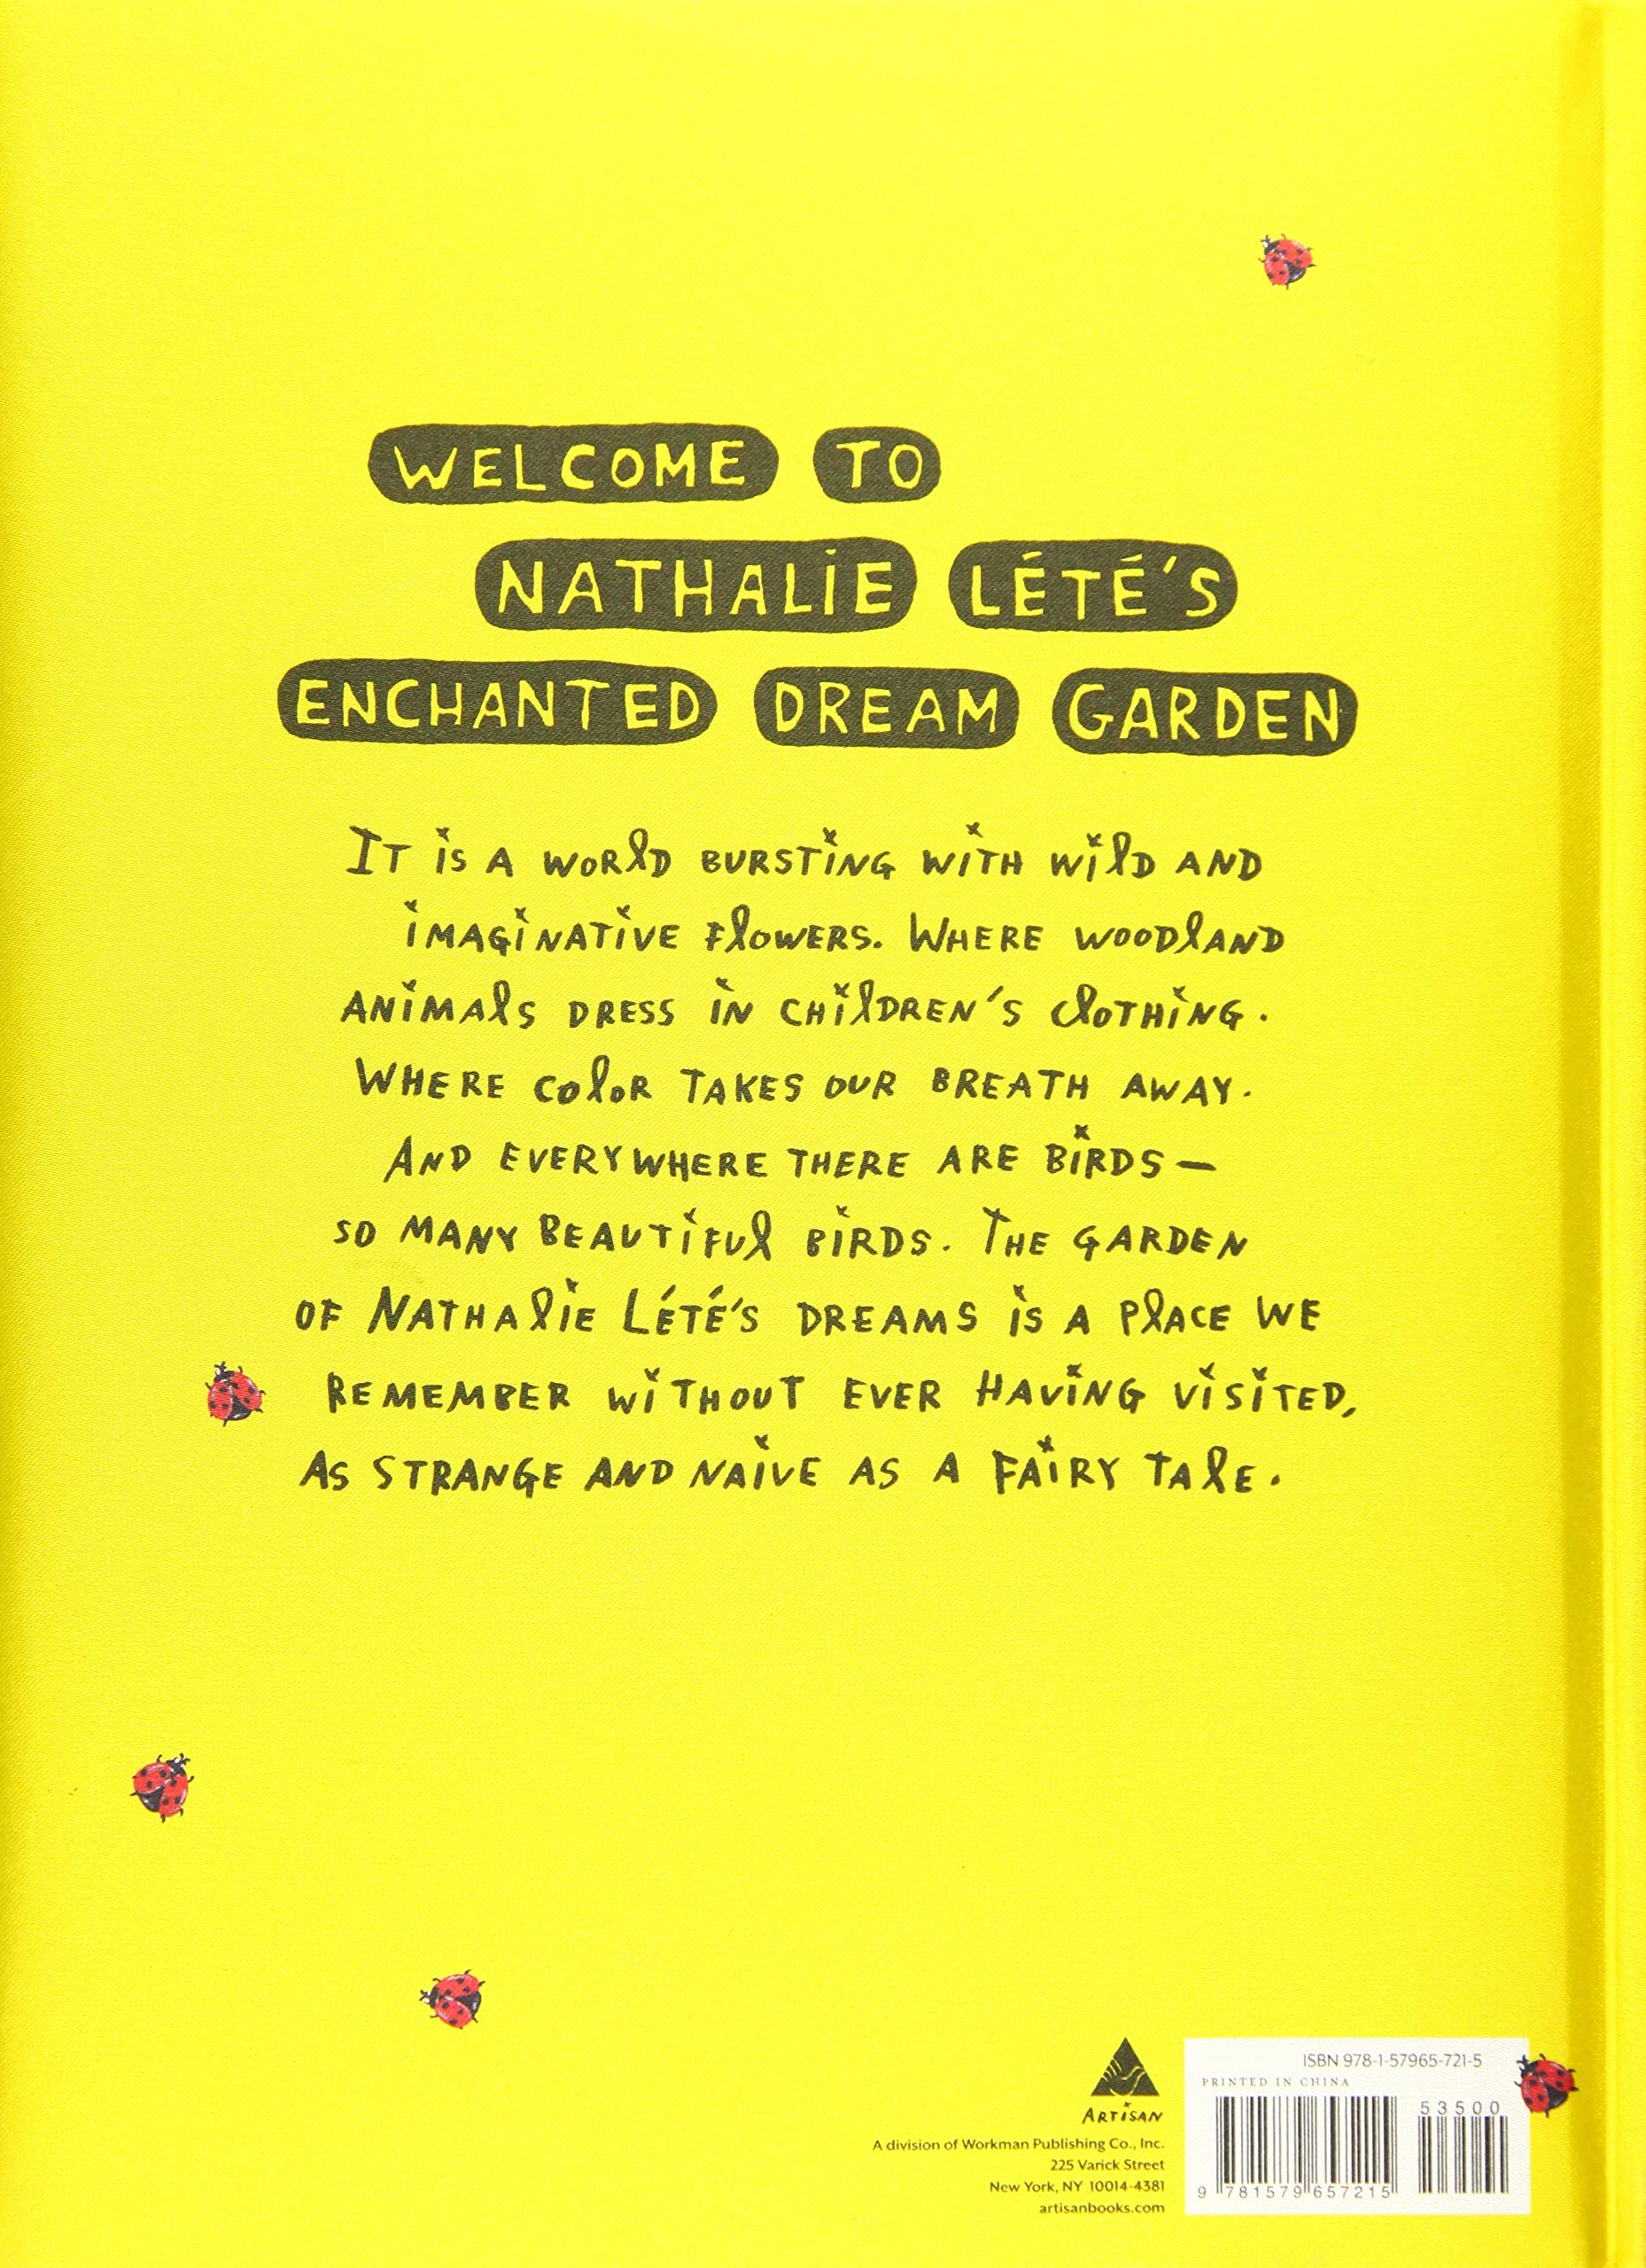 WELCOME TO
NATHALiE LÉTÉ'S
ENCHANTED DREAM GARDEN
IT iS A WORlD BURSTiNG WiTH WilD AND
iMAGiNATiVE FlOWERS. WHERE WOODlAND
ANiMAlS DRESS iN CHilDREN'S ClOTHiNG.
WHERE COlOR TAKES OUR BREATH AWAY.
AND EVERYWHERE THERE ARE BiRDS—
SO MANY BEAUTiFUl BiRDS. THE GARDEN
OF NATHAliE LÉTÉ'S DREAMS iS A PlACE WE
REMEMBER WiTHOUT EVER HAViNG ViSiTED,
AS STRANGE AND NAiVE AS A FAiRY TAlE.
ARTiSAN
A division of Workman Publishing Co., Inc.
225 Varick Street
New York, NY 10014-4381
artisanbooks.com
ISBN 978-1-57965-721-5
PRINTED IN CHINA
53500
9 781579 657215